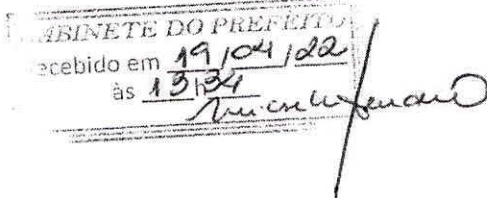 ABINETE DO PREFEITO
ecebido em 19/04/22
às 13:34